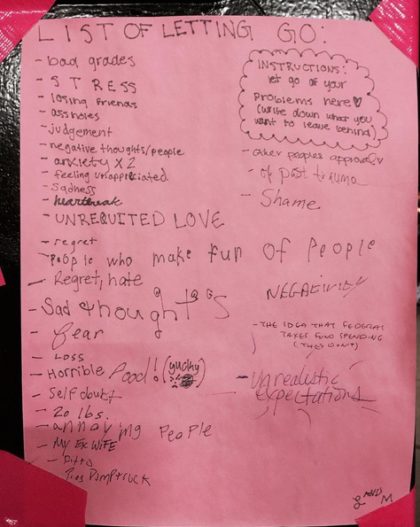 LIST OF LETTING GO:
- bad grades
- STRESS
- losing friends
- assholes
- judgement
- negative thoughts/people
- anxiety x2
- feeling unappreciated
- Sadness
- heartbreak
- UNREQUITED LOVE
- regret
- People who make fun of People
- Regret, hate
- Sad thoughts
- fear
- LOSS
- Horrible Food! (yucky)
- Self doubt
- 20 lbs.
- annoying People
- My Ex WIFE
- Ditto
INSTRUCTIONS:
let go of your
problems here
(write down what you
want to leave behind)
- other peoples approval
- past trauma
- Shame
NEGATIVITY
- THE IDEA THAT FEDERAL
TAXES FUND SPENDING
(THEY DON'T)
- Unrealistic
expectations